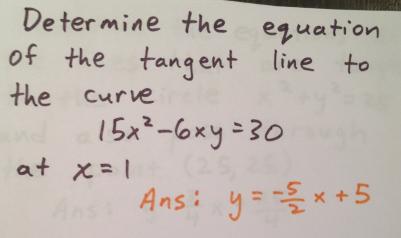 Determine the equation
of the tangent line to
the curve
15x²-6xy=30
at x=1
Ans: y = -5/2 x + 5